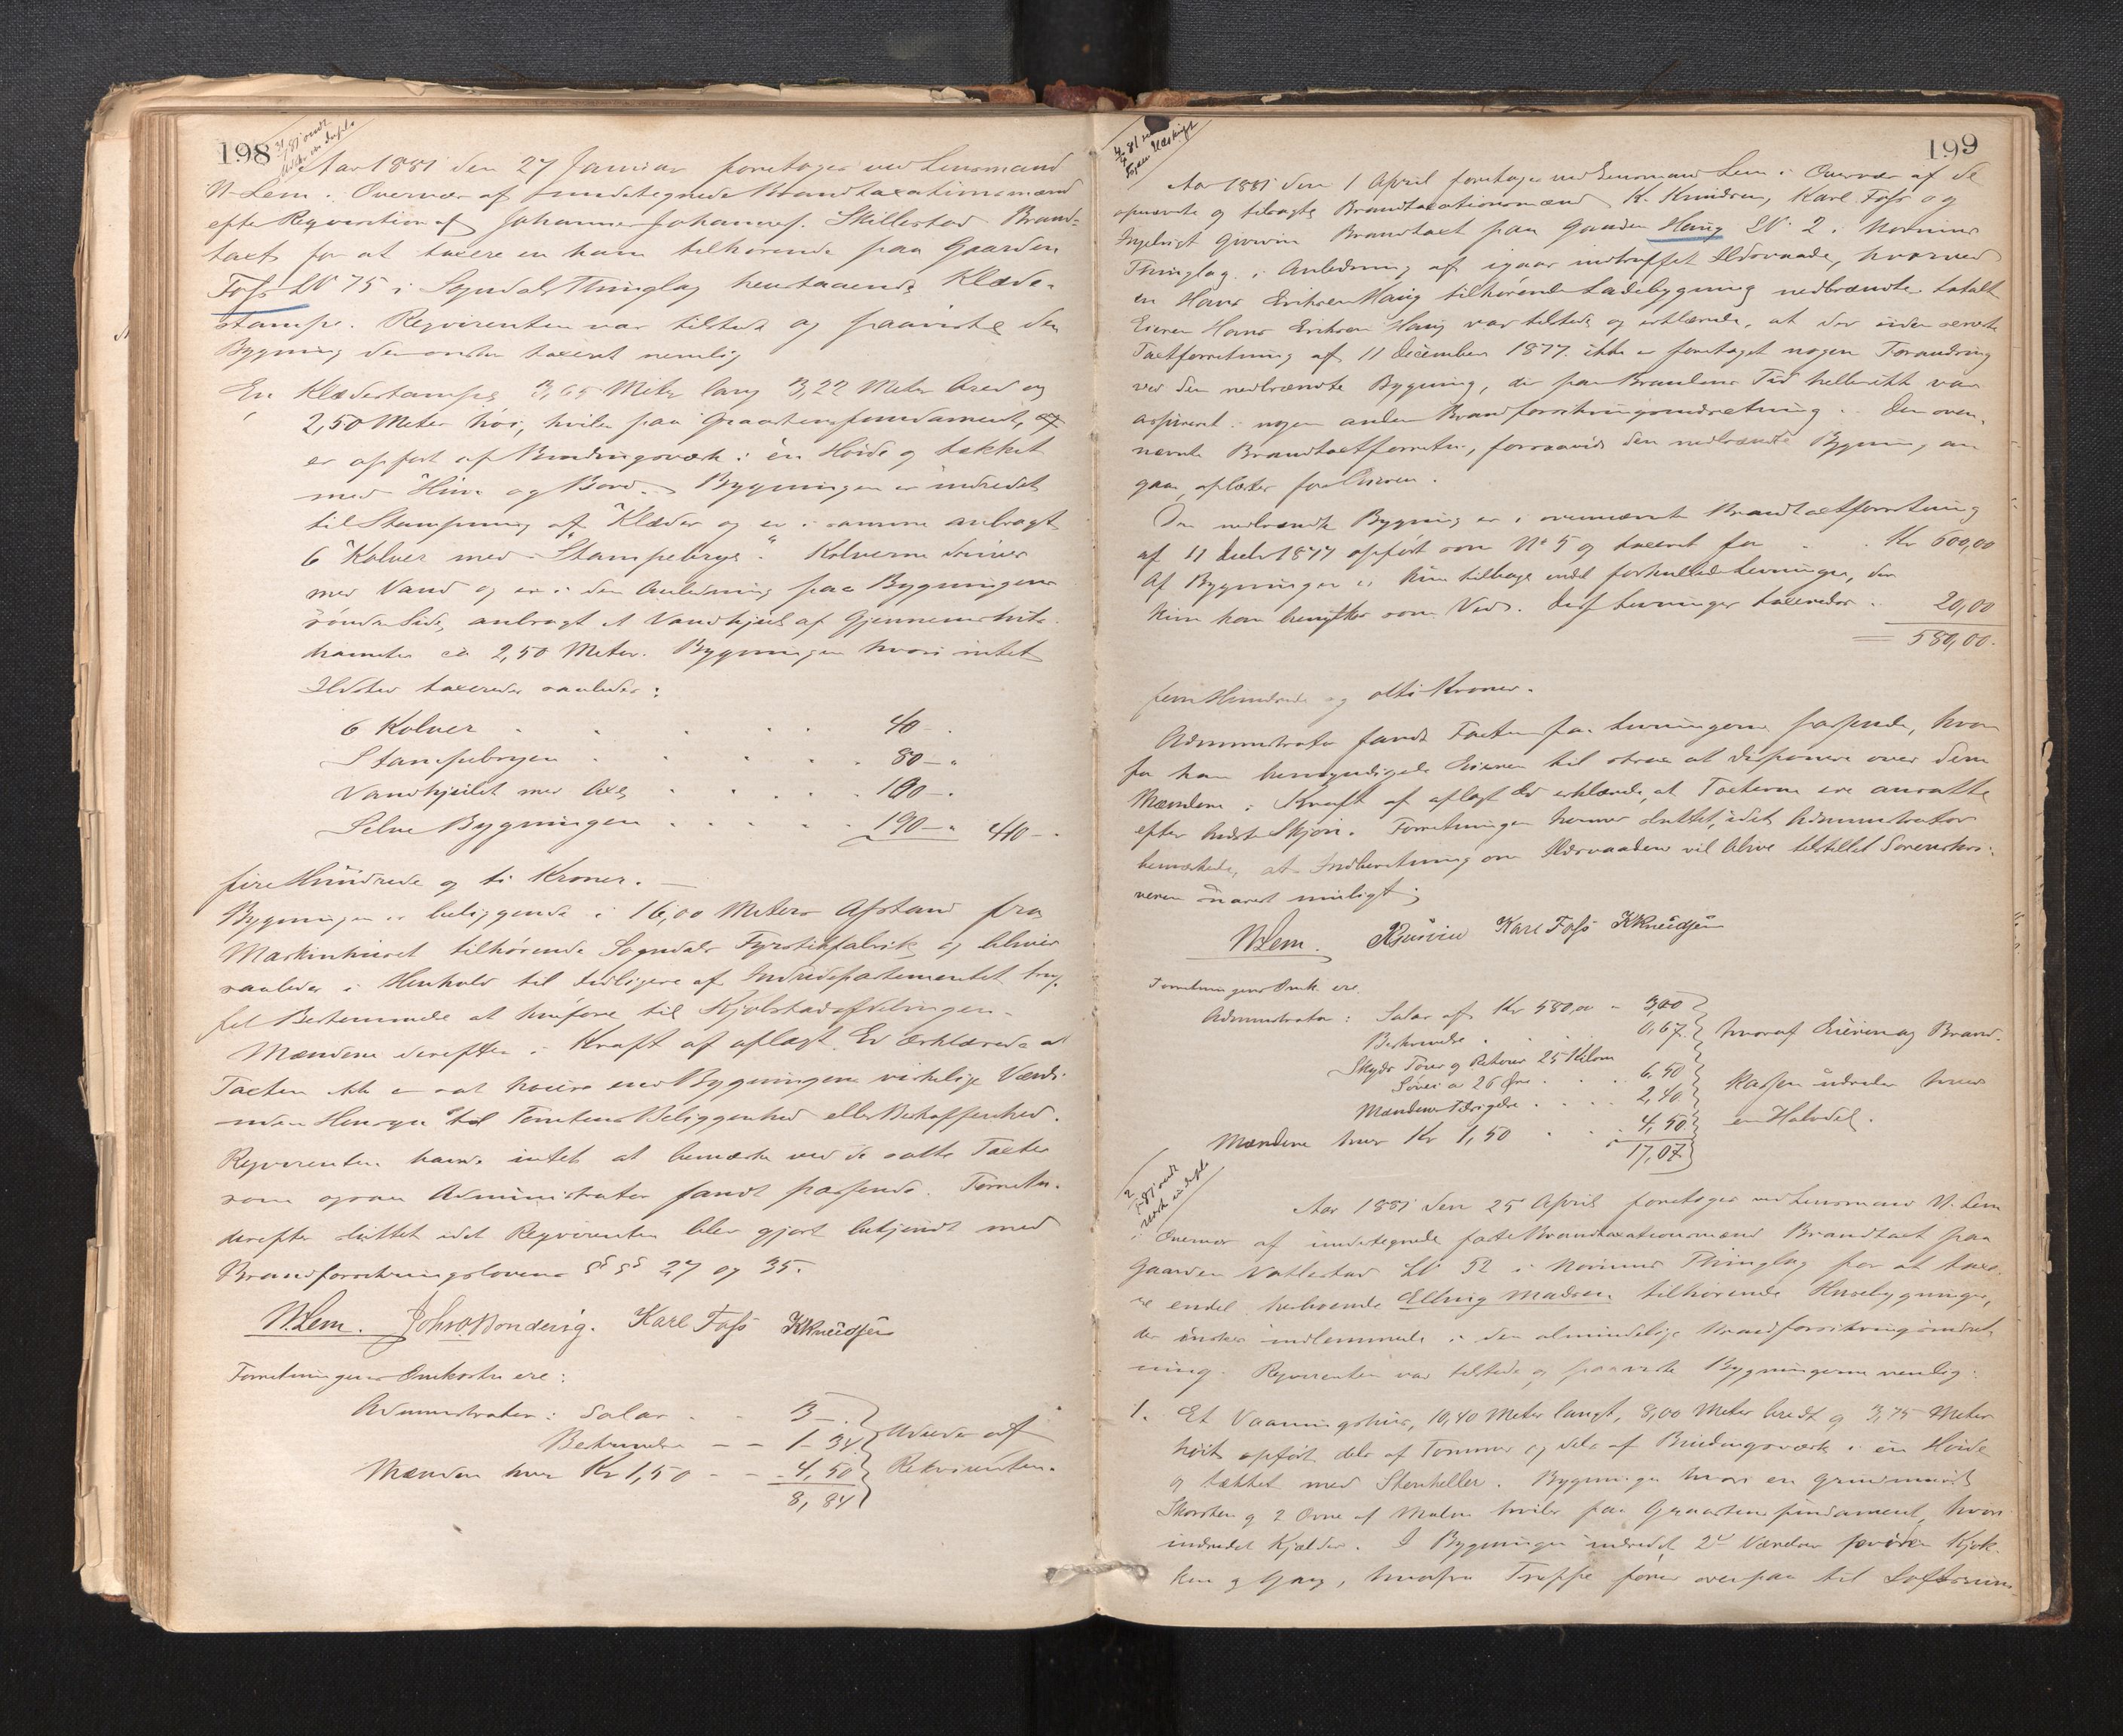 198
Aar 1881 den 27 Januar foretoges ved Lensmand
N. Lem i Overvær af undertegnede Brandtaxationsmænd
efter Reqvisition af Johannes Johannes. Skillestad Brand-
taxt for at taxere en ham tilhørende paa Gaarden
Foss LN 75 i Sogndals Thinglag henstaaende Klæde-
stampe. Reqvirenten var tilstede og paaviste den
Bygning der ønskes taxeret nemlig
En Klædestampe 3,65 Meter lang 3,22 Meter bred og
2,50 Meter høi, hviler paa Graastensfundament, og
er opført af Bindingsværk i èn Høide og tækket
med Hun og Bord. Bygningen er indredet
til Stampning af Klæder og er i samme anbragt
6 Kolver med "Stampebrye". Kolverne drives
med Vand og er i den Anledning paa Bygningens
søndre Side, anbragt et Vandhjul af Gjennemsnits-
diameter ca 2,50 Meter. Bygningen hvori intet
Ildsted taxeredes saaledes:
6 Kolver . . . . . 40 -
Stampebryen . . . . 80 - "
Vandhjulet med Axe . . . . 100 - .
Selve Bygningen . . . . 190 - " 410 - .
fire Hundrede og ti Kroner. —
Bygningen er beliggende i 16,00 Meters Afstand fra
Maskinhuset tilhørende Sogndals Fyrstikfabrik og bliver
saaledes i Henhold til tidligere af Indredepartementet truf-
fet Bestemmelse at henføre til Kjøbstadafdelingen.
Mændene derefter i Kraft af aflagt Ed erklærede at
Taxten ikke er sat høiere end Bygningens virkelige Værdi
uden Hensyn til Tomtens Beliggenhed eller Beskaffenhed.
Reqvirenten havde intet at bemærke ved de satte Taxter
som ogsaa Administrator fandt passende. Forretn.
derefter sluttet idet Reqvirenten blev gjort bekjendt med
Brandforsikringslovens §§ 27 og 35.
N. Lem. Karl Foss KKnudsen
Forretningens Omkostn. ere:
Administrator: Salar . . 3 - .
Beskrivelse - - 1 - 34
Mændene hver Kr 1,50 - - 4,50
8,84
Udredes af
Rekvirenten.
199
Aar 1881 den 1 April foretoges ved Lensmand Lem i Overvær af de
opnævnte og tilsagte Brandtaxationsmænd K. Knudsen, Karl Foss og
Ingebrigt Brandtaxt paa Gaarden Haug LN. 2 i Norums
Thinglag i Anledning af igaar indtruffet Ildsvaade, hvorved
en Hans Eriksen Haug tilhørende Ladebygning nedbrændte totalt
Eieren Hans Eriksen Haug var tilstede og erklærede, at der siden seneste
Taxtforretning af 11 December 1877 ikke er foretaget nogen Forandring
ved den nedbrændte Bygning, der paa Brandens Tid heller ikke var
assureret i nogen anden Brandforsikringsindretning. Den oven-
nævnte Brandtaxtforretn., forsaavidt den nedbrændte Bygning, an-
gaar, oplæstes for Eieren.
Den nedbrændte Bygning er i ovennævnte Brandtaxtforretning
af 11 Decbr 1877 opført som No 5 og taxeret for . . Kr 600,00
Af Bygningen er kun tilbage endel forkullede Levninger, der
kun kan benyttes som Ved. Disse Levninger taxeredes . 20,00
580,00.
fem Hundrede og otti Kroner.
Administrator fandt Taxten paa Levningerne passende, hvor-
for han bemyndigede Eieren til strax at disponere over dem
Mændene i Kraft af aflagt Ed erklærede, at Taxterne ere ansatte
efter bedste Skjøn. Forretningen hermed sluttet, idet Administrator
bemærkede, at Indberetning om Ildsvaaden vil blive tilstillet Sorenskri-
veren snarest muligt.
N. Lem. Karl Foss KKnudsen
Forretningens Omk. ere
Administrator: Salar af Kr 580,00 - 3,00
Beskrivelse . . . 0,67
Skyds Tour og Retour 25 Kilom
Søvei a 26 Øre . . . 6,50
Mændenes . . . 2,40
Mændene hver Kr 1,50 . . 4,50
17,07
hvoraf Eieren og Brand-
kassen udreder hver
en Halvdel.
Aar 1881 den 25 April foretoges ved Lensmand N. Lem
i Overvær af undertegnede faste Brandtaxationsmænd Brandtaxt paa
Gaarden LN 52 i Norums Thinglag for at taxe-
re endel herboende Elling Madsen tilhørende Husebygninger,
der ønskes indlemmede i den almindelige Brandforsikringsindret-
ning. Reqvirenten var tilstede og paaviste Bygningerne nemlig:
1. Et Vaaningshus, 10,40 Meter langt, 8,00 Meter bredt og 3,75 Meter
høit opført dels af Tømmer og dels af Bindingsværk i èn Høide
og tækket med Stenheller. Bygningen hvori en grundmuret
Skorsten og 2 Ovne af Malm hviler paa Graastensfundament, hvori
indredet Kjælder. I Bygningen indredet 2de Værelser foruden Kjøk-
ken og Gang, hvorfra Trappe fører ovenpaa til Loftsrum-